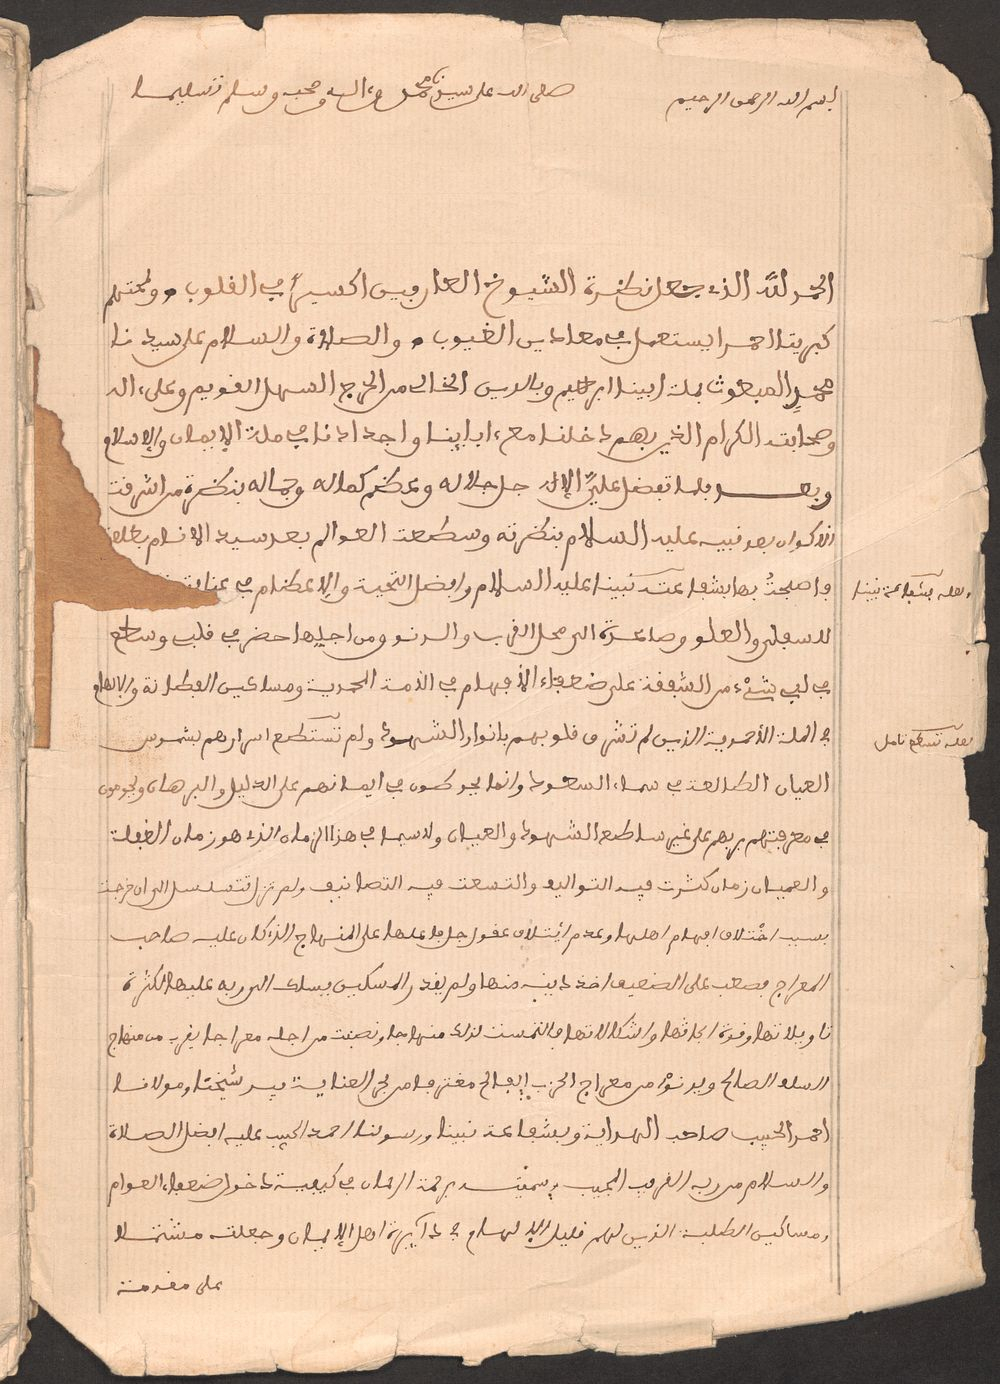 بسم الله الرحمن الرحيم صلى الله على سيدنا محمد وءاله وصحبه وسلم تسليما
الحمد لله الذي جعل نظرة الشيوخ العارفين اكسيرا في القلوب ولمحتهم
كبريتا احمرا يستعمل في معادين الغيوب والصلاة والسلام على سيدنا
محمد المبعوث بملة ابينا ابراهيم وبالدين الخالي من الحرج السهل القويم وعلى ءاله
وصحابته الكرام الذين بهم دخلنا مع ءابائنا واجدادنا في ملة الإيمان والإسلام
وبعد فلما تفضل علي الإله جل جلاله وعظم كماله وجماله بنظرة من اشرقت
الاكوان بعد نبيه عليه السلام بنظرته وسطعت العوالم بعد سيد الانام بطلعته
واصبحت بها بشفاعة نبينا عليه السلام وافضل التحية والإعظام في
للسفلي والعلو وصاعدة الى محل القرب والدنو ومن اجلها حضر في قلبي وسطع
في لبي شيء من الشفقة على ضعفاء الأفهام في الأمة المحمدية ومساكين الفطانة والالهام
في الملة الأحمدية الذين لم تشرق قلوبهم بانوار الشهود ولم تستطع اسرارهم بشموس
العيان الطالعة في سماء السعود وانما يحوطون في ايمانهم على الدليل والبرهان ويحومون
في معرفتهم بربهم على غير ساطع الشهود والعيان ولا سيما في هذا الزمان الذي هو زمان الغفلة
والعميان زمان كثرت فيه التواليف واتسعت فيه التصانيف ولم تزل تتسلسل الى ان خرجت
بسبب اختلاف افهام اهلها وعدم ائتلاف عقول جل فاعلها على المنهاج الذي كان عليه صاحب
المعراج فصعب على الضعيف اخذ دينه منها ولم يقدر المسكين يسلك الى ربه عليها لكثرة
تاويلاتها وقوة ابحاثها واشكالاتها فالتمست لذلك منهاجا ونصبت من اجله معراجا يقرب من منهاج
السلف الصالح ويدنو من معراج الحزب الفالح مغترفا من بحر العناية بيد شيخنا ومولانا
احمد الحبيب صاحب الهداية وبشفاعة نبينا ورسولنا احمد الحبيب عليه افضل الصلاة
والسلام من ربه القريب المجيب وسميته برحمة الرحمان في كيفية دخول ضعفاء العوام
ومساكين الطلبة الذين لهم قليل الإلهام في دائرة اهل الإيمان وجعلته مشتملا
على مقدمة
لعله بشفاعة نبينا
لعله تسطع تامل